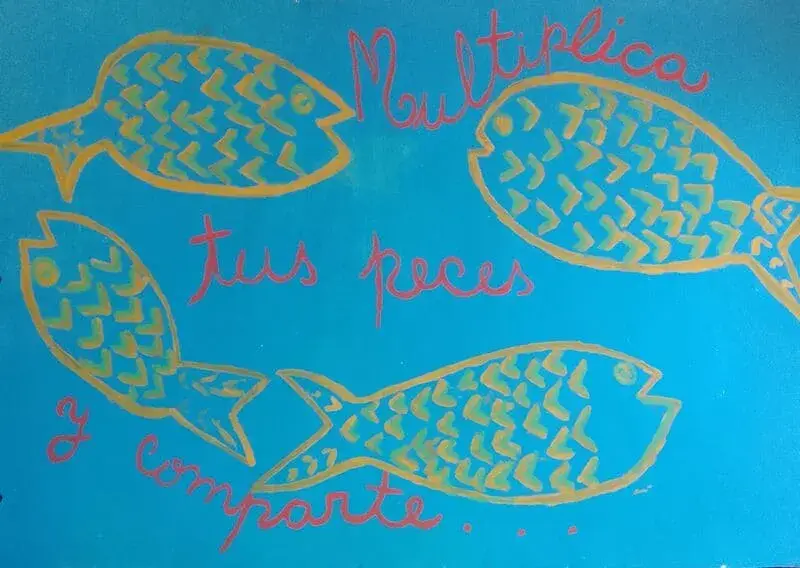 Multiplica
tus peces
y comparte...